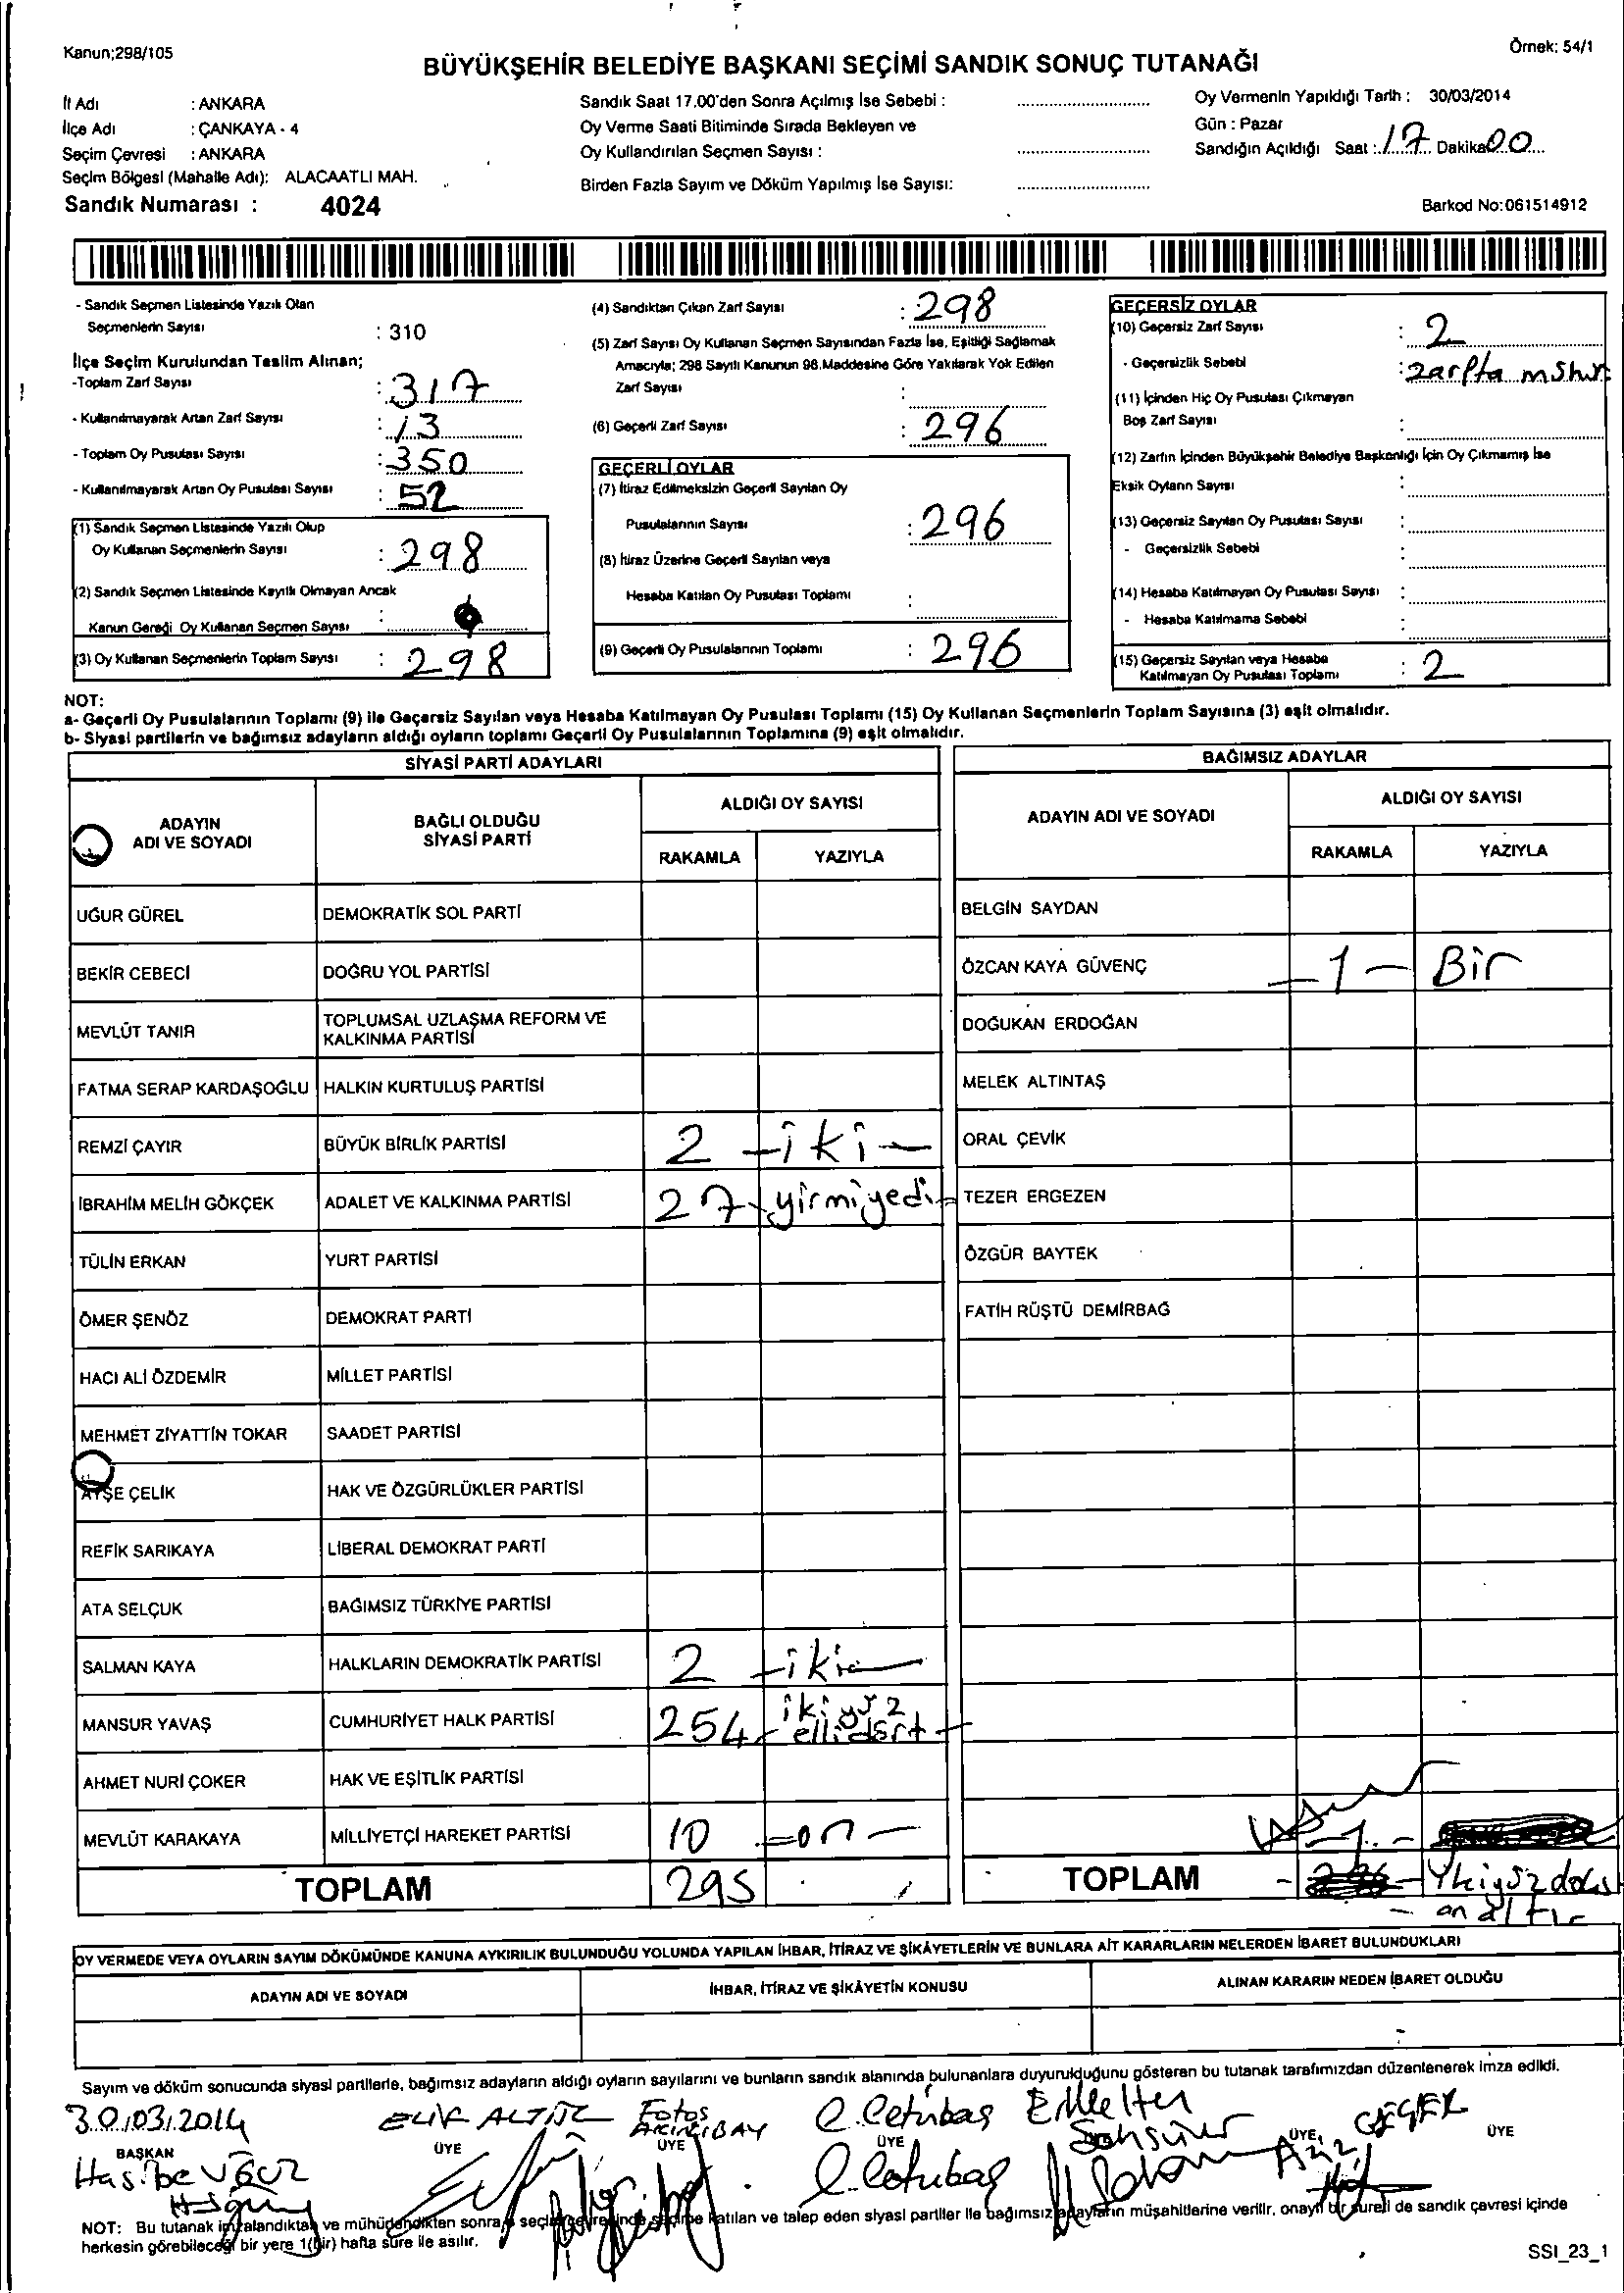 Kanun;298/105
Örnek: 54/1
BÜYÜKŞEHİR BELEDİYE BAŞKANI SEÇİMİ SANDIK SONUÇ TUTANAĞI
İl Adı : ANKARA
İlçe Adı : ÇANKAYA - 4
Seçim Çevresi : ANKARA
Seçim Bölgesi (Mahalle Adı): ALACAATLI MAH.
Sandık Numarası : 4024
Sandık Saat 17.00'den Sonra Açılmış İse Sebebi :
Oy Verme Saati Bitiminde Sırada Bekleyen ve
Oy Kullandırılan Seçmen Sayısı :
Birden Fazla Sayım ve Döküm Yapılmış İse Sayısı:
Oy Vermenin Yapıldığı Tarih : 30/03/2014
Gün : Pazar
Sandığın Açıldığı Saat : 17 Dakika 00
Barkod No:061514912
- Sandık Seçmen Listesinde Yazılı Olan
Seçmenlerin Sayısı : 310
İlçe Seçim Kurulundan Teslim Alınan;
-Toplam Zarf Sayısı : 317
- Kullanılmayarak Artan Zarf Sayısı : 13
- Toplam Oy Pusulası Sayısı : 350
- Kullanılmayarak Artan Oy Pusulası Sayısı : 52
(1) Sandık Seçmen Listesinde Yazılı Olup
Oy Kullanan Seçmenlerin Sayısı : 298
(2) Sandık Seçmen Listesinde Kayıtlı Olmayan Ancak
Kanun Gereği Oy Kullanan Seçmen Sayısı :
(3) Oy Kullanan Seçmenlerin Toplam Sayısı : 298
(4) Sandıktan Çıkan Zarf Sayısı : 298
(5) Zarf Sayısı Oy Kullanan Seçmen Sayısından Fazla İse, Eşitliği Sağlamak
Amacıyla; 298 Sayılı Kanunun 98.Maddesine Göre Yakılarak Yok Edilen
Zarf Sayısı :
(6) Geçerli Zarf Sayısı : 296
GEÇERLİ OYLAR
(7) İtiraz Edilmeksizin Geçerli Sayılan Oy
Pusulalarının Sayısı : 296
(8) İtiraz Üzerine Geçerli Sayılan veya
Hesaba Katılan Oy Pusulası Toplamı :
(9) Geçerli Oy Pusulalarının Toplamı : 296
GEÇERSİZ OYLAR
(10) Geçersiz Zarf Sayısı : 2
- Geçersizlik Sebebi : zarfta
(11) İçinden Hiç Oy Pusulası Çıkmayan
Boş Zarf Sayısı :
(12) Zarfın İçinden Büyükşehir Belediye Başkanlığı İçin Oy Çıkmamış İse
Eksik Oyların Sayısı :
(13) Geçersiz Sayılan Oy Pusulası Sayısı :
- Geçersizlik Sebebi :
(14) Hesaba Katılmayan Oy Pusulası Sayısı :
- Hesaba Katılmama Sebebi :
(15) Geçersiz Sayılan veya Hesaba
Katılmayan Oy Pusulası Toplamı : 2
NOT:
a- Geçerli Oy Pusulalarının Toplamı (9) ile Geçersiz Sayılan veya Hesaba Katılmayan Oy Pusulası Toplamı (15) Oy Kullanan Seçmenlerin Toplam Sayısına (3) eşit olmalıdır.
b- Siyasi partilerin ve bağımsız adayların aldığı oyların toplamı Geçerli Oy Pusulalarının Toplamına (9) eşit olmalıdır.
SİYASİ PARTİ ADAYLARI
ADAYIN ADI VE SOYADI
BAĞLI OLDUĞU SİYASİ PARTİ
ALDIĞI OY SAYISI
RAKAMLA YAZIYLA
UĞUR GÜREL DEMOKRATİK SOL PARTİ
BEKİR CEBECİ DOĞRU YOL PARTİSİ
MEVLÜT TANIR TOPLUMSAL UZLAŞMA REFORM VE KALKINMA PARTİSİ
FATMA SERAP KARDAŞOĞLU HALKIN KURTULUŞ PARTİSİ
REMZİ ÇAYIR BÜYÜK BİRLİK PARTİSİ 2 - iki -
İBRAHİM MELİH GÖKÇEK ADALET VE KALKINMA PARTİSİ 27 - yirmiyedi -
TÜLİN ERKAN YURT PARTİSİ
ÖMER ŞENÖZ DEMOKRAT PARTİ
HACI ALİ ÖZDEMİR MİLLET PARTİSİ
MEHMET ZİYATTİN TOKAR SAADET PARTİSİ
AYŞE ÇELİK HAK VE ÖZGÜRLÜKLER PARTİSİ
REFİK SARIKAYA LİBERAL DEMOKRAT PARTİ
ATA SELÇUK BAĞIMSIZ TÜRKİYE PARTİSİ
SALMAN KAYA HALKLARIN DEMOKRATİK PARTİSİ 2 - iki -
MANSUR YAVAŞ CUMHURİYET HALK PARTİSİ 254 - ikiyüz ellidört -
AHMET NURİ ÇOKER HAK VE EŞİTLİK PARTİSİ
MEVLÜT KARAKAYA MİLLİYETÇİ HAREKET PARTİSİ 10 - on -
TOPLAM 295
BAĞIMSIZ ADAYLAR
ADAYIN ADI VE SOYADI
ALDIĞI OY SAYISI
RAKAMLA YAZIYLA
BELGİN SAYDAN
ÖZCAN KAYA GÜVENÇ - 1 - Bir
DOĞUKAN ERDOĞAN
MELEK ALTINTAŞ
ORAL ÇEVİK
TEZER ERGEZEN
ÖZGÜR BAYTEK
FATİH RÜŞTÜ DEMİRBAĞ
- 1 -
TOPLAM
OY VERMEDE VEYA OYLARIN SAYIM DÖKÜMÜNDE KANUNA AYKIRILIK BULUNDUĞU YOLUNDA YAPILAN İHBAR, İTİRAZ VE ŞİKÂYETLERİN VE BUNLARA AİT KARARLARIN NELERDEN İBARET BULUNDUKLARI
ADAYIN ADI VE SOYADI İHBAR, İTİRAZ VE ŞİKÂYETİN KONUSU ALINAN KARARIN NEDEN İBARET OLDUĞU
Sayım ve döküm sonucunda siyasi partilerle, bağımsız adayların aldığı oyların sayılarını ve bunların sandık alanında bulunanlara duyurulduğunu gösteren bu tutanak tarafımızdan düzenlenerek imza edildi.
30/03/2014
BAŞKAN ÜYE ÜYE ÜYE ÜYE ÜYE
NOT: Bu tutanak imzalandıktan ve mühürlendikten sonra, seçim çevresinde seçime katılan ve talep eden siyasi partiler ile bağımsız adayların müşahitlerine verilir, onaylı bir sureti de sandık çevresi içinde
herkesin görebileceği bir yere 1(bir) hafta süre ile asılır.
SSI_23_1